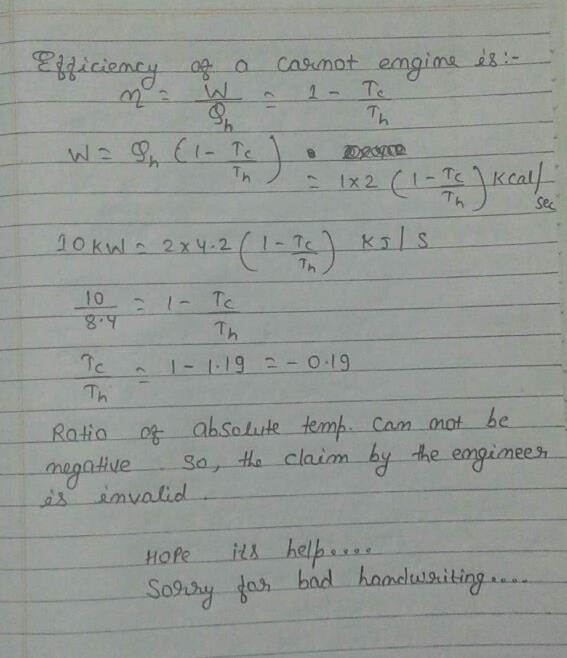 Efficiency of a carnot engine is:-
η = W/Qh = 1 - Tc/Th
W = Qh (1 - Tc/Th)
= 1x2 (1 - Tc/Th) Kcal/sec
10 KW = 2x4.2 (1 - Tc/Th) KJ/S
10/8.4 = 1 - Tc/Th
Tc/Th = 1 - 1.19 = - 0.19
Ratio of absolute temp. can not be
negative. So, the claim by the engineer
is invalid.
HOPE its help....
Sorry for bad handwriting....